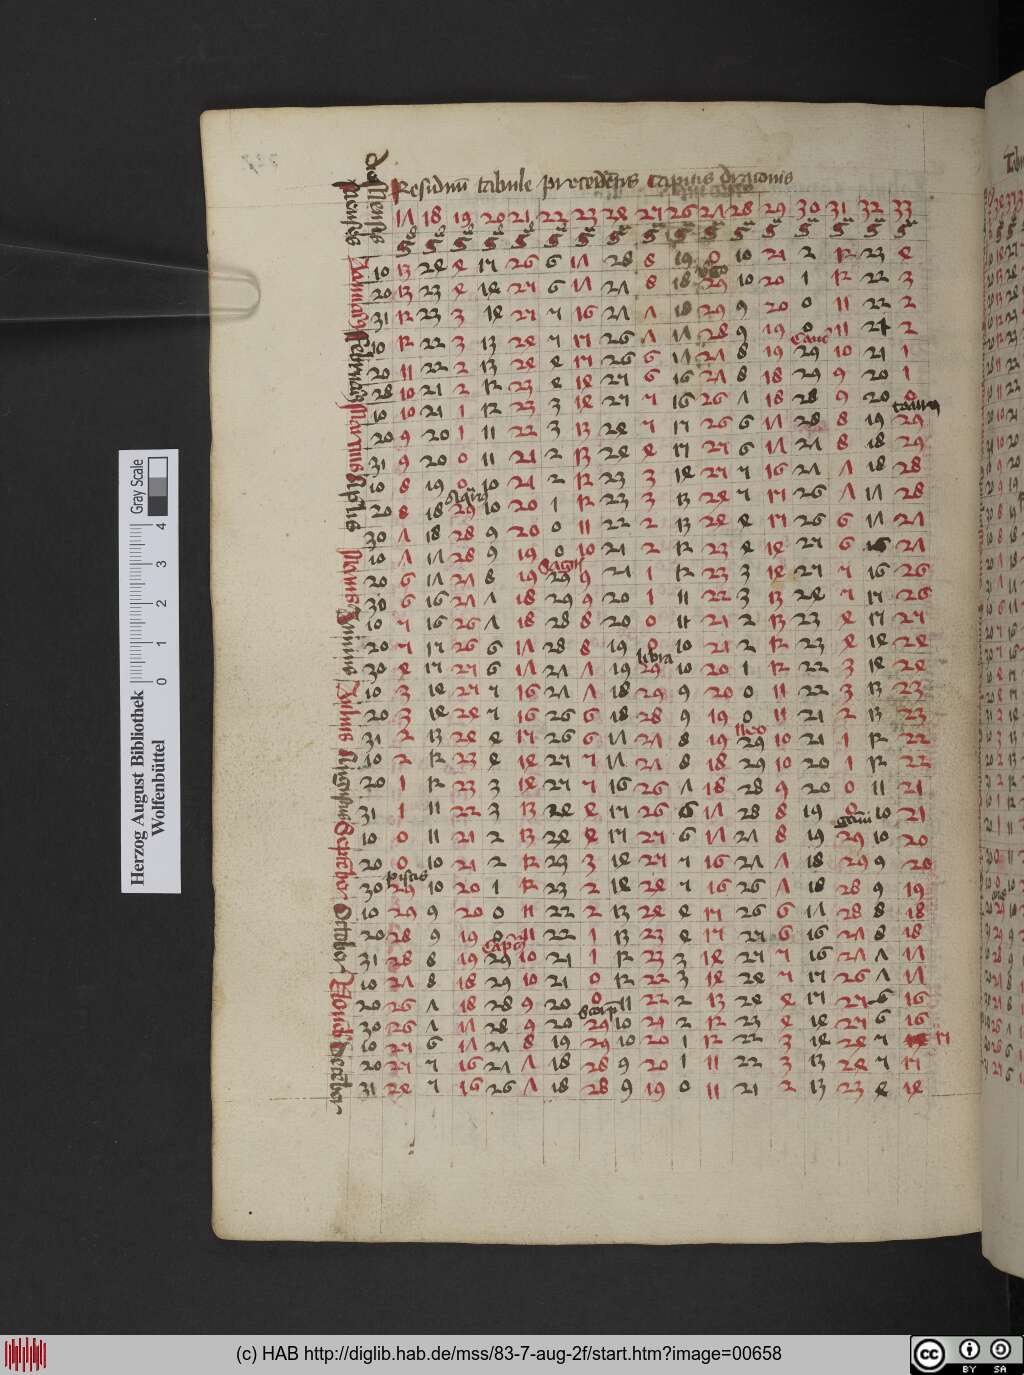 Residuum tabule precedentis capitis draconis
Menses
dies Mensis
17 18 19 20 21 22 23 24 25 26 27 28 29 30 31 32 33
gra gra gra gra gra gra gra gra gra gra gra gra gra gra gra gra gra
Januarius
10 13 24 4 15 26 6 17 28 8 19 0 10 21 2 12 23 4
virgo
20 13 23 4 14 25 6 17 27 8 18 29 10 20 1 12 22 3
31 12 23 3 14 25 5 16 27 7 18 29 9 20 0 11 22 2
Februarius
10 12 22 3 13 24 5 15 26 7 17 28 9 19 0 11 21 2
Canc
20 11 22 2 13 24 4 15 26 6 17 27 8 19 29 10 21 1
28 10 21 2 12 23 4 14 25 6 16 27 8 18 29 9 20 1
Marcius
10 10 21 1 12 23 3 14 25 5 16 26 7 18 28 9 20 0
taurus
20 9 20 1 11 22 3 13 24 5 15 26 6 17 28 8 19 29
31 9 20 0 11 21 2 13 24 4 15 25 6 17 27 8 18 29
Aprilis
10 8 19 0 10 21 2 12 23 3 14 25 5 16 27 7 18 28
Aquar
20 8 18 29 10 20 1 12 23 3 13 24 5 15 26 7 17 28
30 7 18 28 9 20 0 11 22 2 13 24 4 15 26 6 17 27
Maius
10 7 17 28 9 19 0 10 21 2 12 23 4 14 25 6 16 27
Sagitt
20 6 17 27 8 19 29 9 21 1 12 23 3 14 25 5 16 26
30 6 16 27 7 18 29 9 20 1 11 22 3 13 24 5 15 26
Junius
10 5 16 26 7 18 28 8 20 0 11 21 2 13 23 4 15 25
20 5 15 26 6 17 28 8 19 0 10 21 2 12 23 4 14 24
libra
30 4 15 25 6 17 27 7 19 29 10 20 1 12 22 3 14 24
Julius
10 3 14 25 5 16 27 7 18 29 9 20 0 11 22 3 13 23
20 3 14 24 5 16 26 6 18 28 9 19 0 11 21 2 13 23
leo
31 2 13 24 4 15 26 6 17 27 8 19 29 10 21 1 12 22
Augustus
10 2 12 23 4 14 25 5 17 27 8 18 29 10 20 1 12 22
20 1 12 23 3 14 25 5 16 26 7 18 28 9 20 0 11 21
31 1 11 22 3 13 24 4 15 26 6 17 28 8 19 0 10 21
Gemi
September
10 0 11 21 2 13 24 4 15 25 6 17 27 8 19 29 10 20
20 0 10 21 2 12 23 3 14 25 5 16 27 7 18 29 9 20
piscis
30 29 10 20 1 12 23 2 14 24 5 16 26 7 18 28 9 19
October
10 29 9 20 0 11 22 2 13 24 4 15 26 6 17 28 8 18
20 28 9 19 0 11 22 1 13 23 4 15 25 6 16 27 8 18
Capri
31 28 8 19 29 10 21 1 12 23 3 14 25 5 16 27 7 17
November
10 27 8 18 29 10 21 0 12 22 3 14 24 5 15 26 7 17
20 26 7 18 28 9 20 0 11 22 2 13 24 4 15 25 6 16
Scorp
30 26 7 17 28 9 20 29 10 21 2 12 23 4 14 25 6 16
December
10 25 6 17 27 8 19 29 10 20 1 12 22 3 14 24 5 15
20 25 5 16 27 7 18 28 9 20 1 11 22 3 13 24 5 15
31 24 5 16 26 7 18 28 9 19 0 11 21 2 13 23 4 14
Herzog August Bibliothek
Wolfenbüttel
0 1 2 3 4
Gray Scale
(c) HAB http://diglib.hab.de/mss/83-7-aug-2f/start.htm?image=00658
cc BY SA